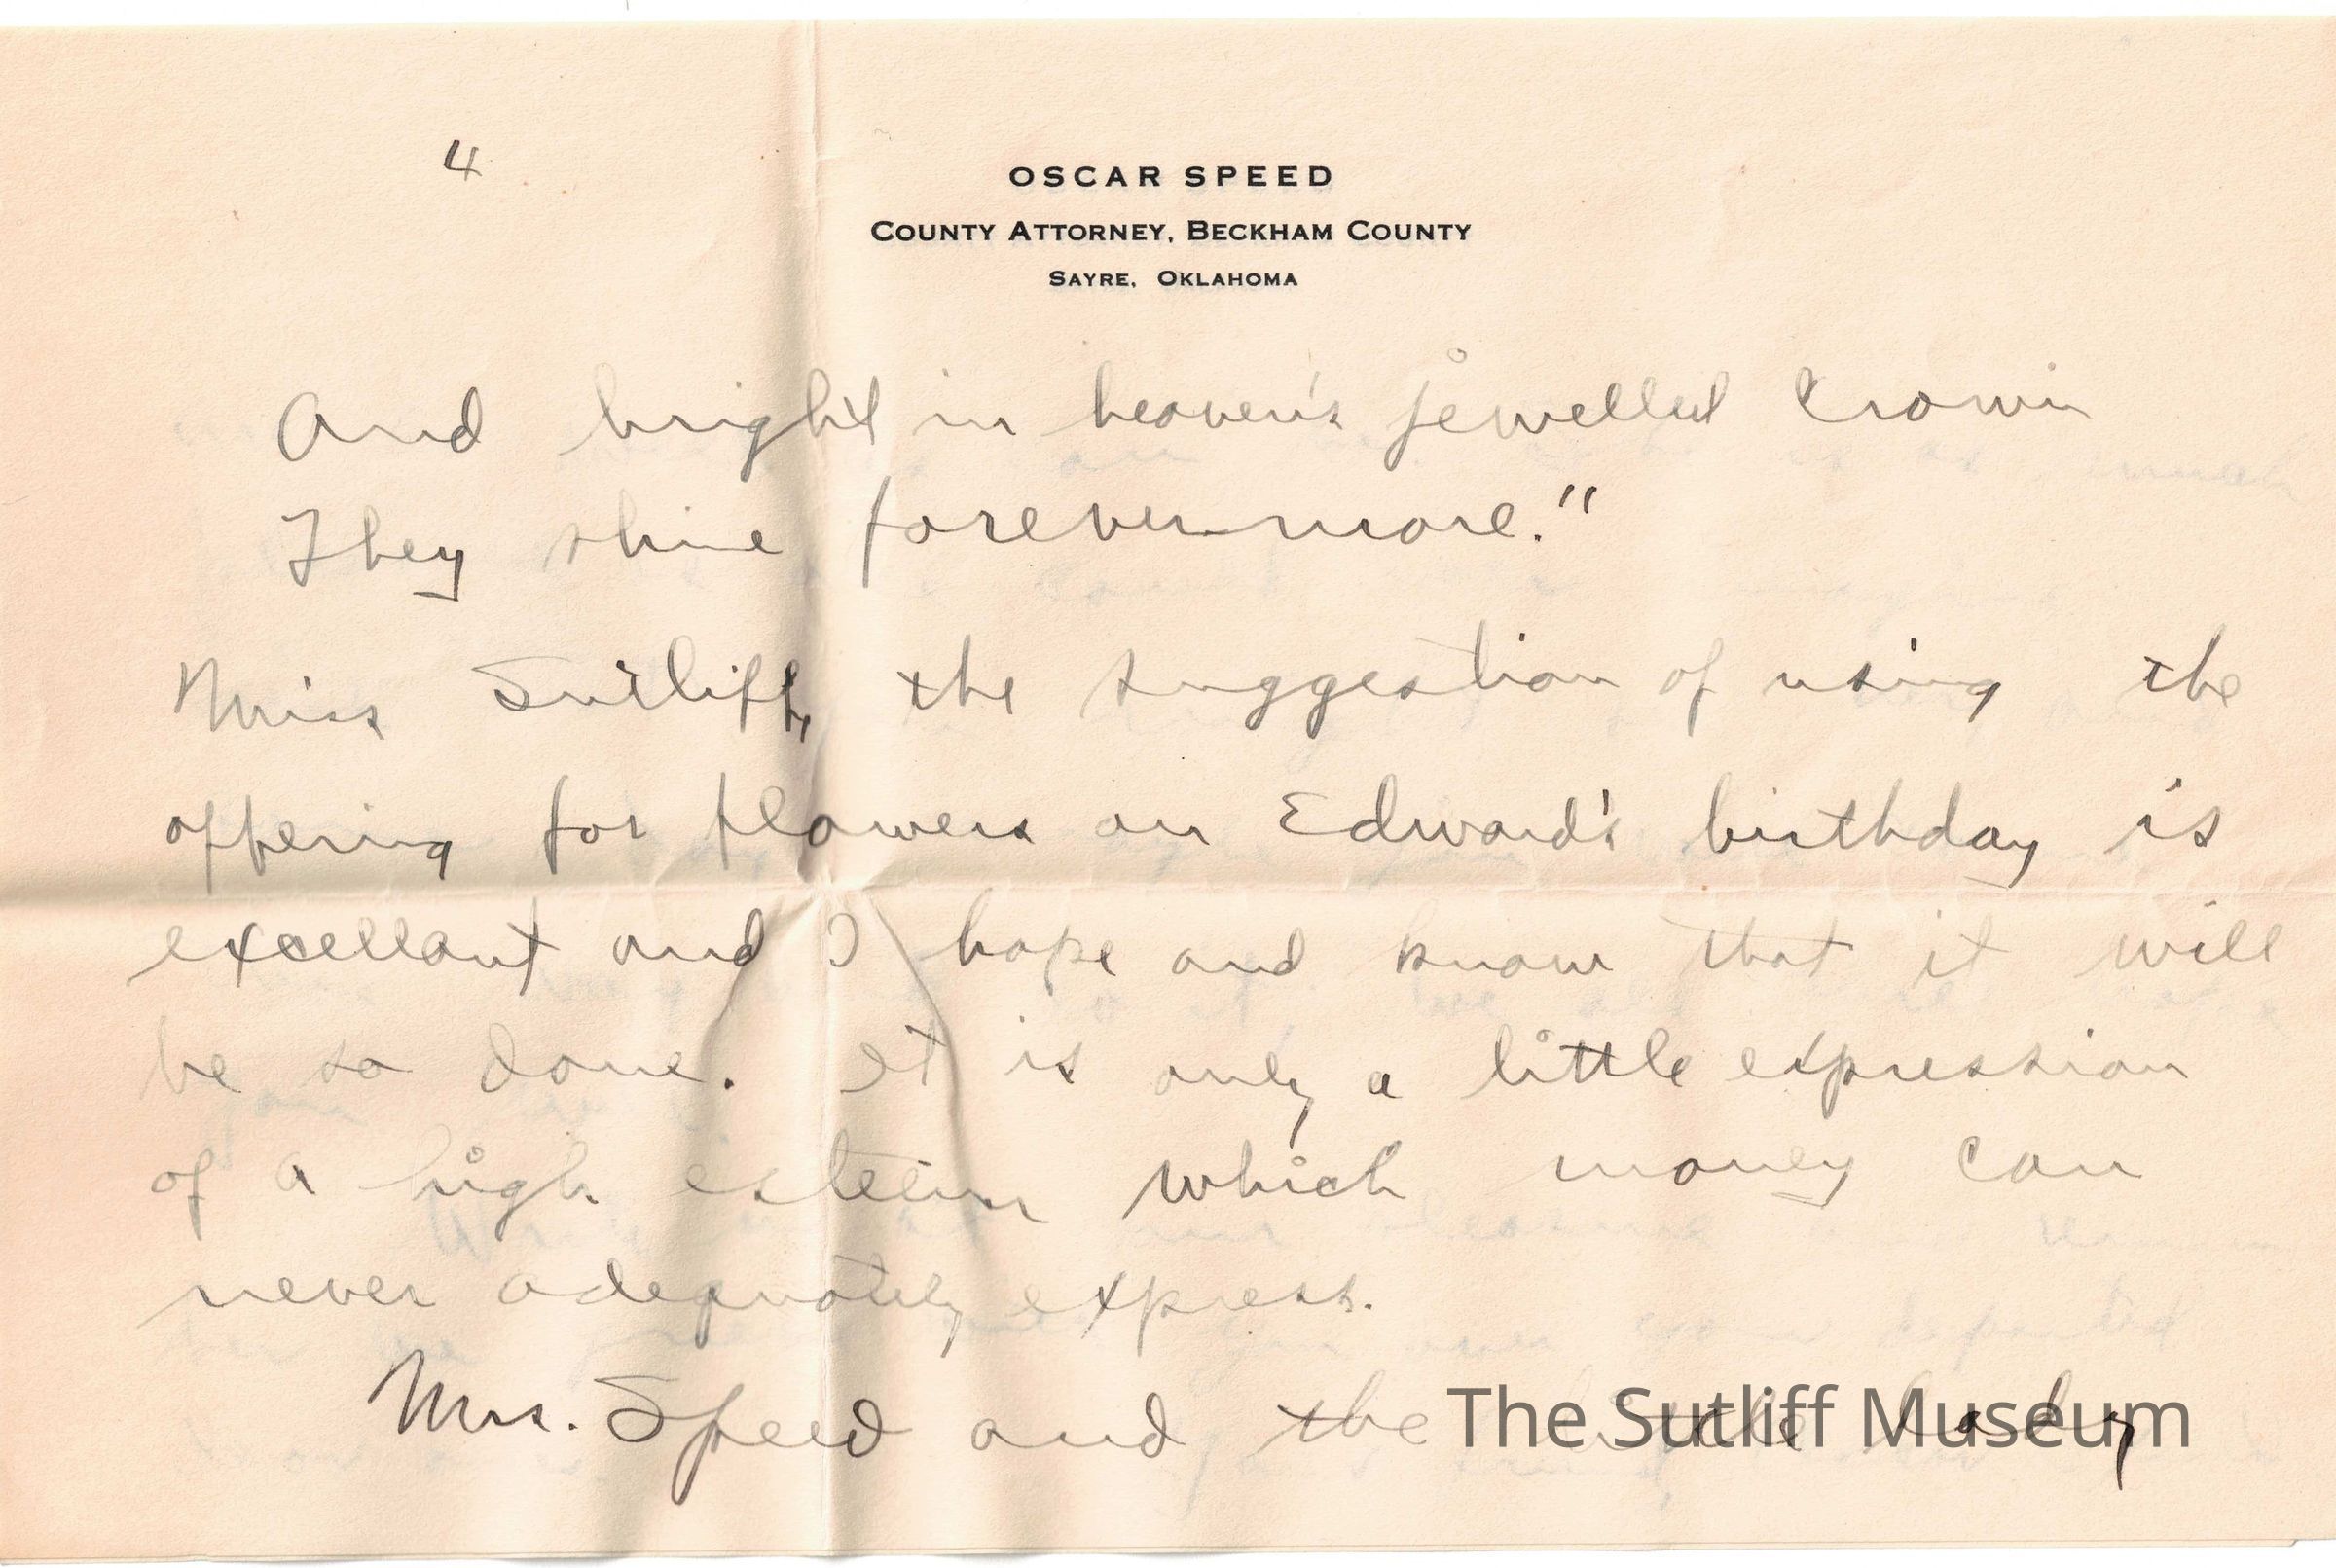 4
OSCAR SPEED
COUNTY ATTORNEY, BECKHAM COUNTY
SAYRE, OKLAHOMA
And bright in heaven's jewelled crown
They shine forevermore."
Miss Sutliff, the suggestion of using the
offering for flowers on Edward's birthday is
excellant and I hope and know that it will
be so done. It is only a little expression
of a high esteem which money can
never adequately express.
Mrs. Speed and the little lady
The Sutliff Museum